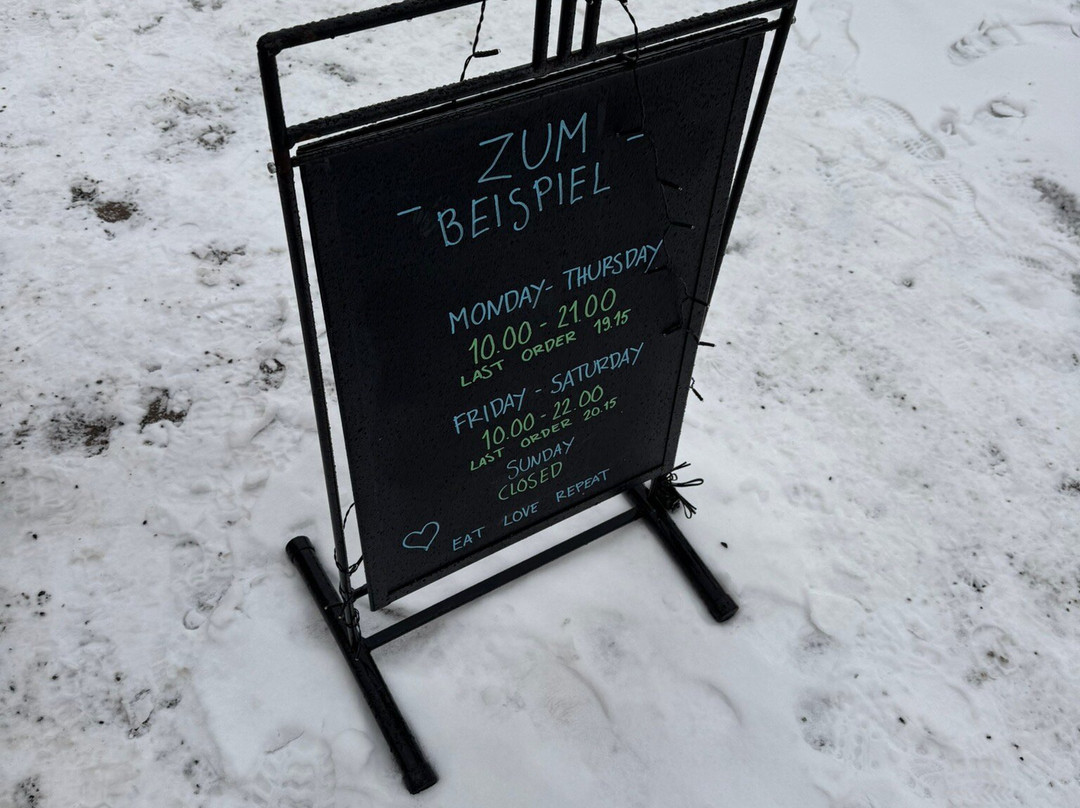 ZUM
- BEISPIEL -
MONDAY - THURSDAY
10.00 - 21.00
LAST ORDER 19.15
FRIDAY - SATURDAY
10.00 - 22.00
LAST ORDER 20.15
SUNDAY
CLOSED
EAT LOVE REPEAT